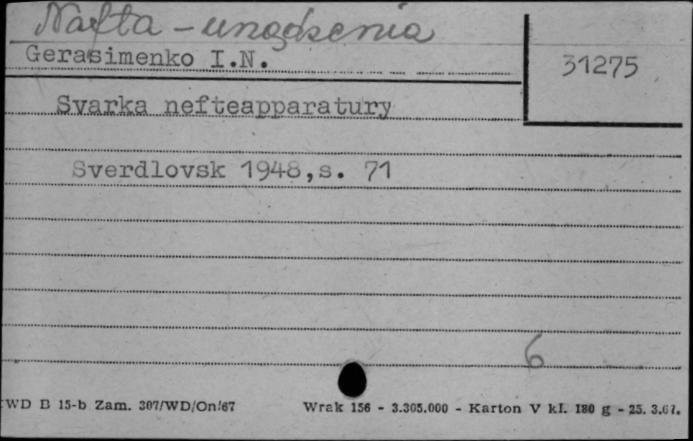 Nafta - urządzenia
Gerasimenko I.N.
31275
Svarka nefteapparatury
Sverdlovsk 1948,s. 71
6
WD B 15-b Zam. 307/WD/On/67 Wrak 156 - 3.305.000 - Karton V kl. 180 g - 25. 3.67.